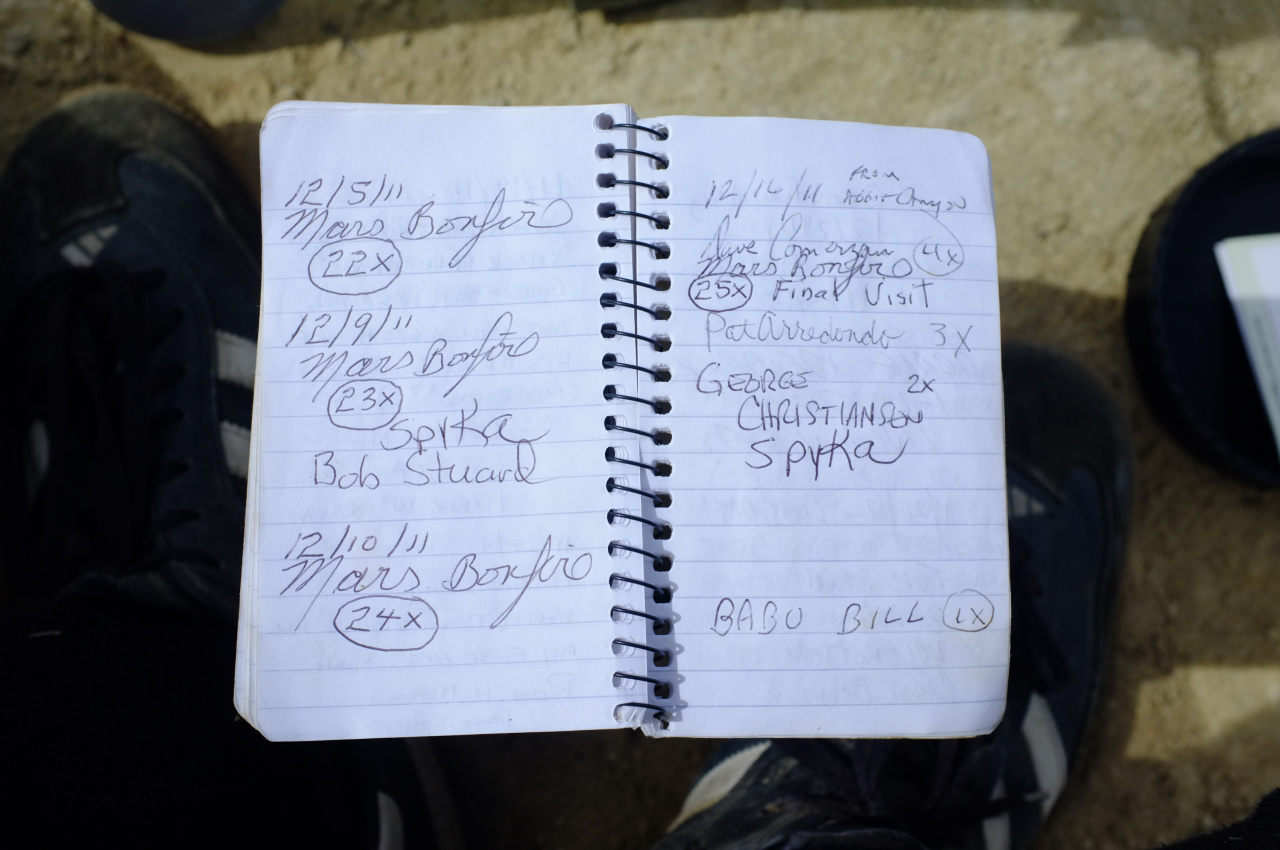 12/5/11
Mars Bonfire
22x
12/9/11
Mars Bonfire
23x
Spyka
Bob Stuard
12/10/11
Mars Bonfire
24x
12/14/11
FROM
Canyon
4x
Mars Bonfire
25x Final Visit
Pat Arredondo 3x
GEORGE 2x
CHRISTIANSON
Spyka
BABU BILL 1x